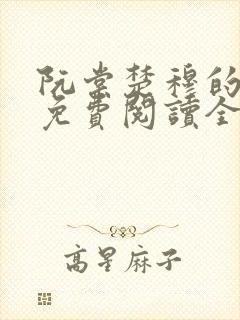 阮棠楚穆的
免費閱讀全
高星麻子